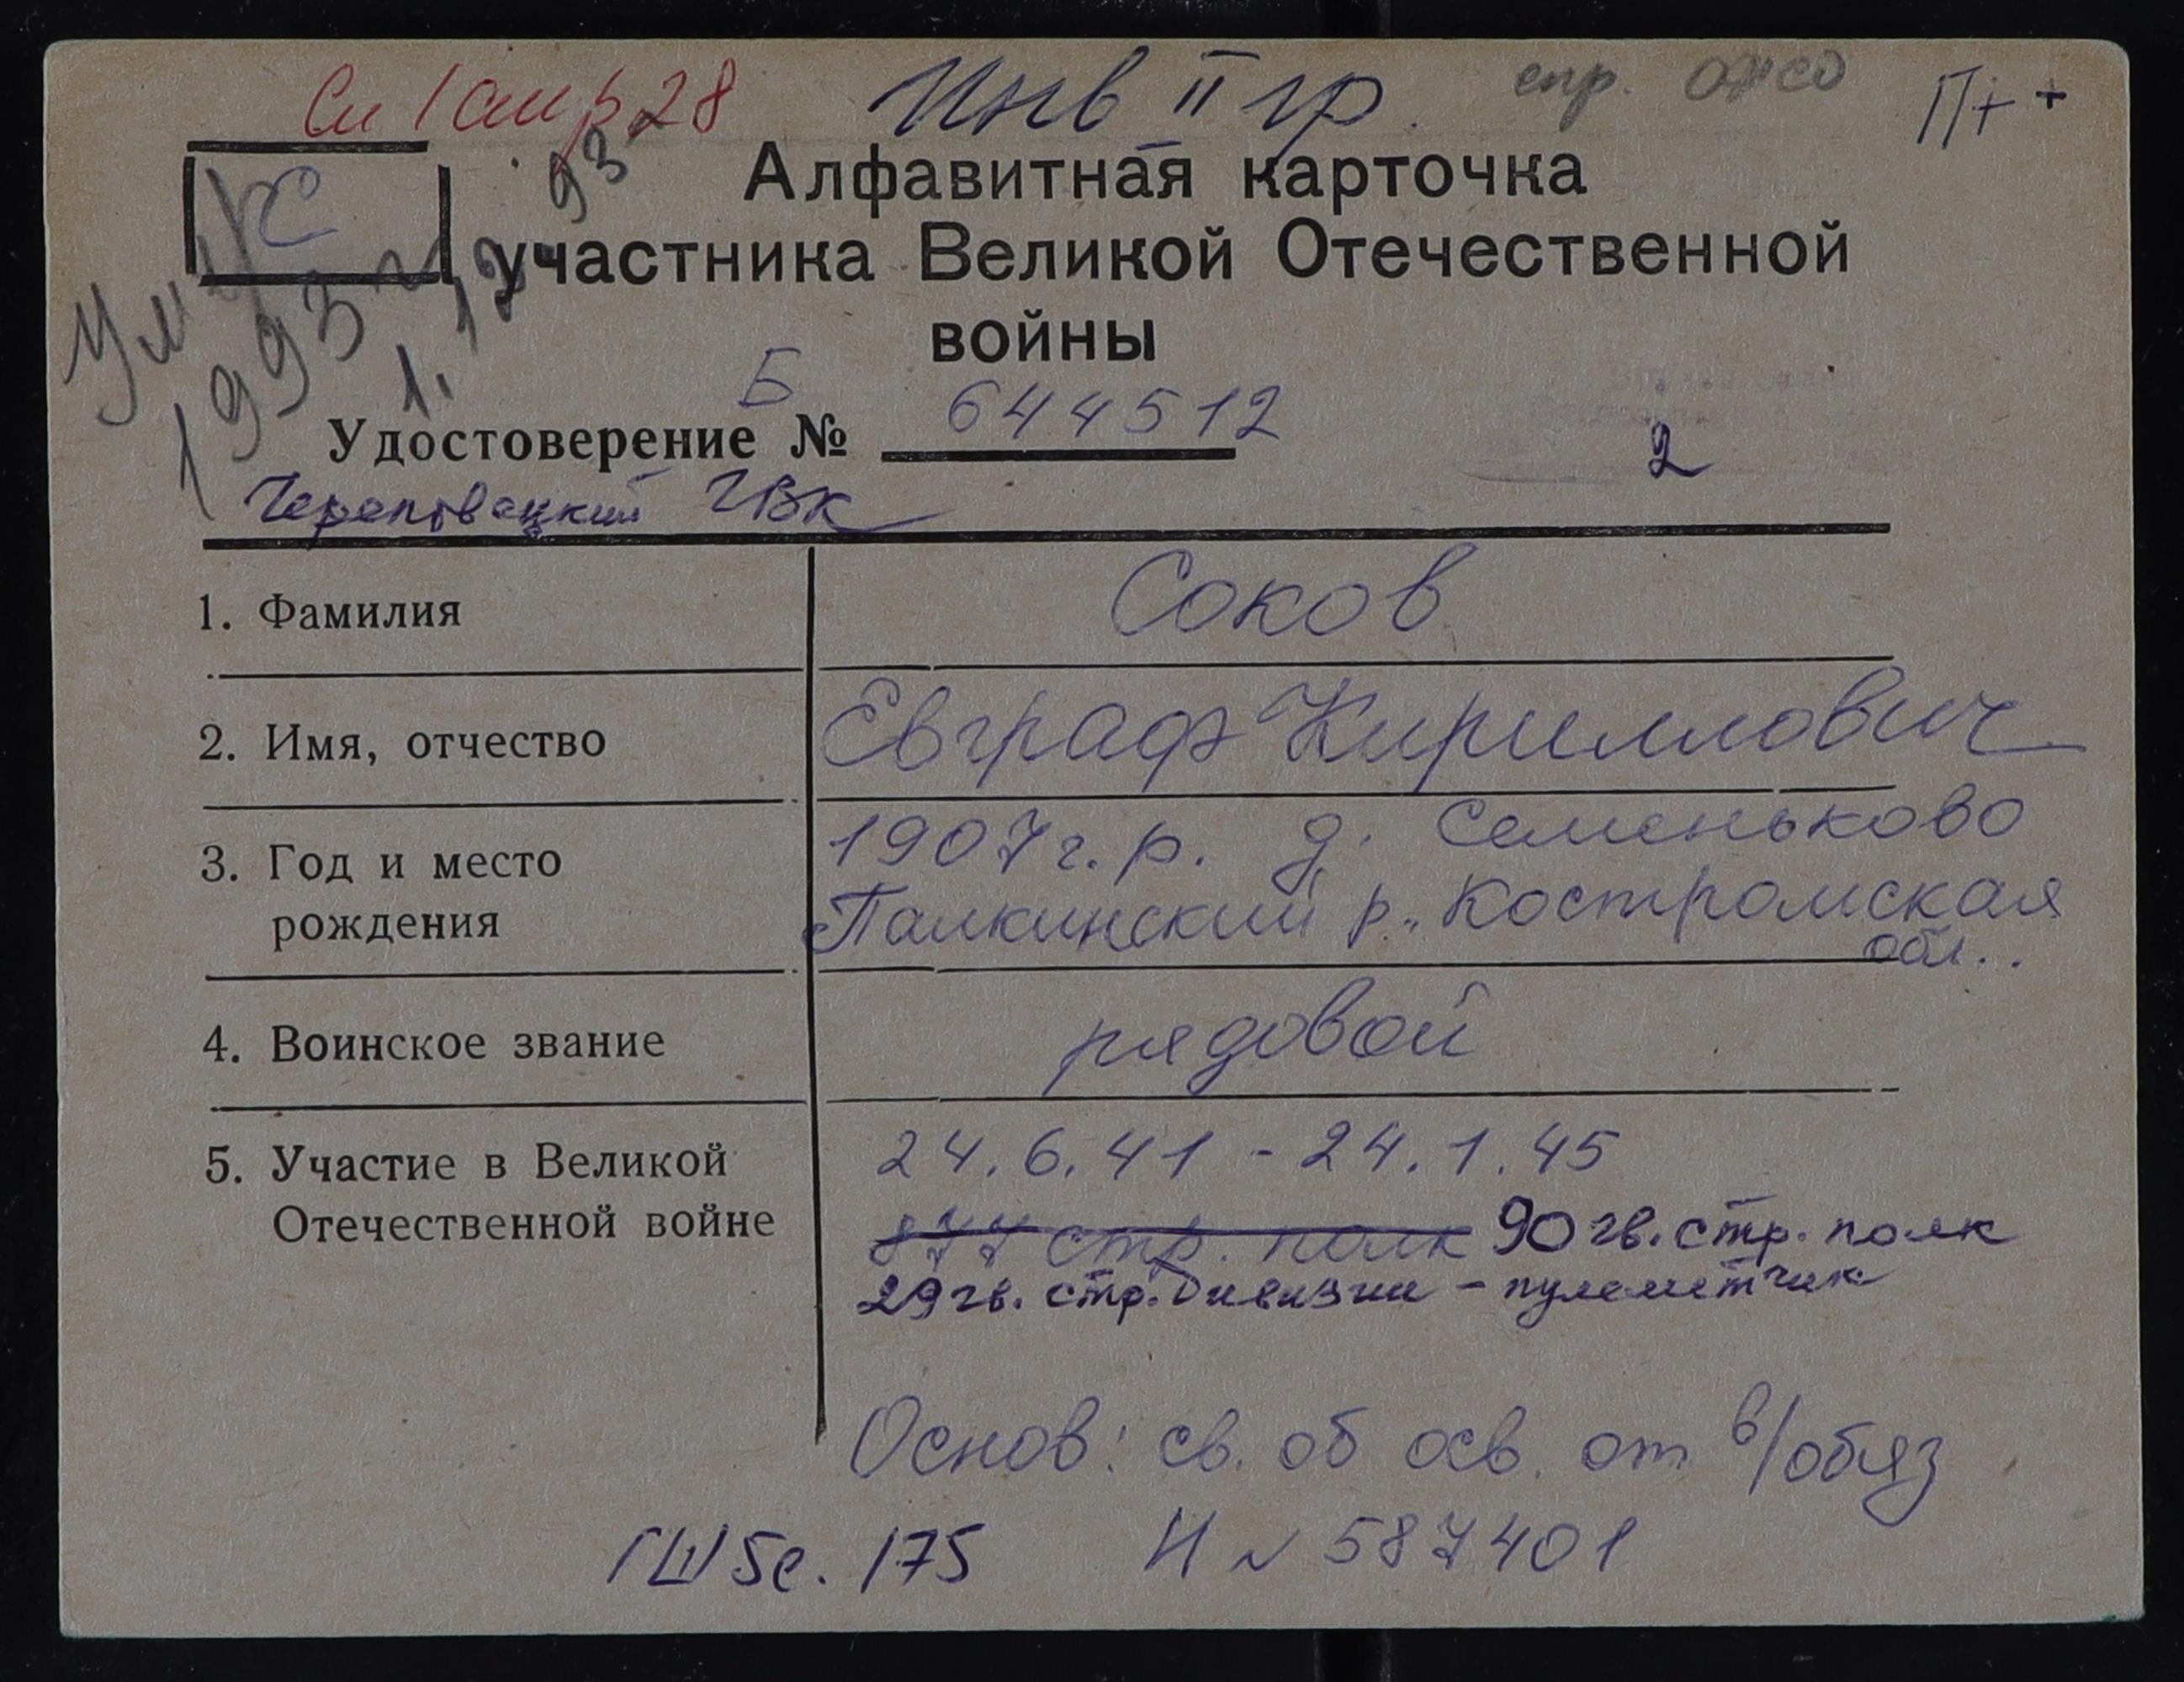 Инв II гр.
спр.
П++
С
Алфавитная карточка
участника Великой Отечественной
войны
1993 г
1.12.93
Б
Удостоверение № 644512
2
Череповецкий ГВК
1. Фамилия Соков
2. Имя, отчество Евграф Кириллович
3. Год и место рождения 1907 г. р. д. Семеньково
Палкинский р. Костромская
обл..
4. Воинское звание рядовой
5. Участие в Великой Отечественной войне 24.6.41 - 24.1.45
877 стр. полк 90 гв. стр. полк
29 гв. стр. дивизии - пулеметчик
Основ: св. об осв. от в/обяз
175 Н № 587401